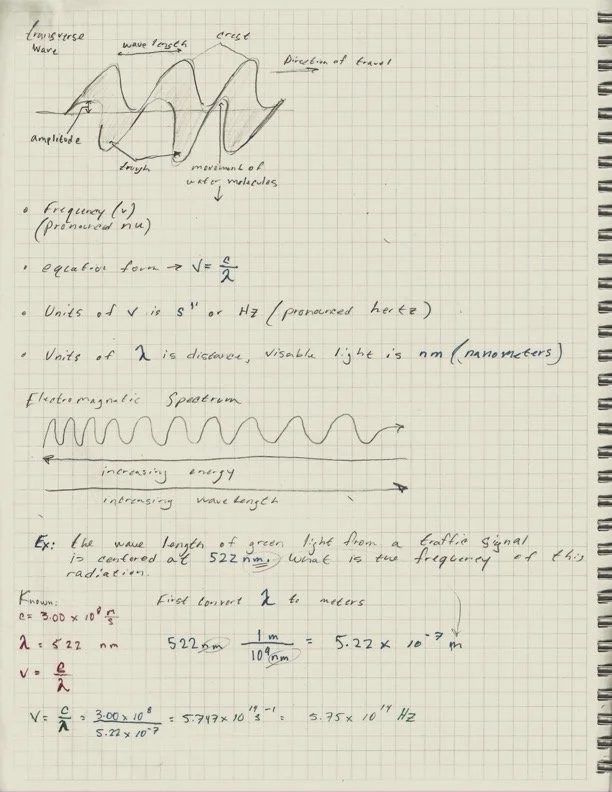 transverse
wave
wave length
crest
Direction of travel
amplitude
trough
movement of
water molecules
• Frequency (ν)
(pronounced nu)
• equation form → ν = c/λ
• Units of ν is s⁻¹ or Hz (pronounced hertz)
• Units of λ is distance, visable light is nm (nanometers)
Electromagnetic Spectrum
increasing energy
increasing wavelength
Ex: the wave length of green light from a traffic signal
is centered at 522 nm. What is the frequency of this
radiation.
Known: First convert λ to meters
c = 3.00 x 10⁸ m/s
λ = 522 nm 522 nm 1 m/10⁹ nm = 5.22 x 10⁻⁷ m
ν = c/λ
ν = c/λ = 3.00 x 10⁸/5.22 x 10⁻⁷ = 5.747 x 10¹⁴ s⁻¹ = 5.75 x 10¹⁴ Hz